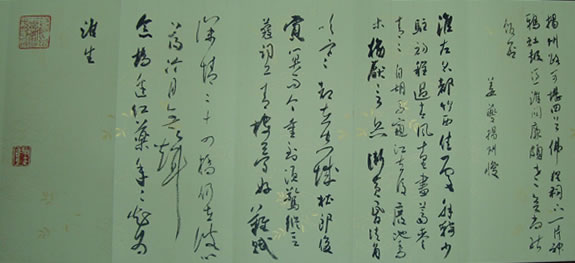 揚州路可堪回首佛狸祠下一片神
鴉社鼓憑誰問廉頗老矣尚能
飯否
姜夔揚州慢
淮左名都竹西佳處解鞍少
駐初程過春風十里盡薺麥
青青自胡馬窺江去後廢池喬
木猶厭言兵漸黃昏清角
吹寒都在空城杜郎俊
賞算而今重到須驚縱豆
蔻詞工青樓夢好難賦
深情二十四橋仍在波心
蕩冷月無聲
念橋邊紅葉年年知為
誰生